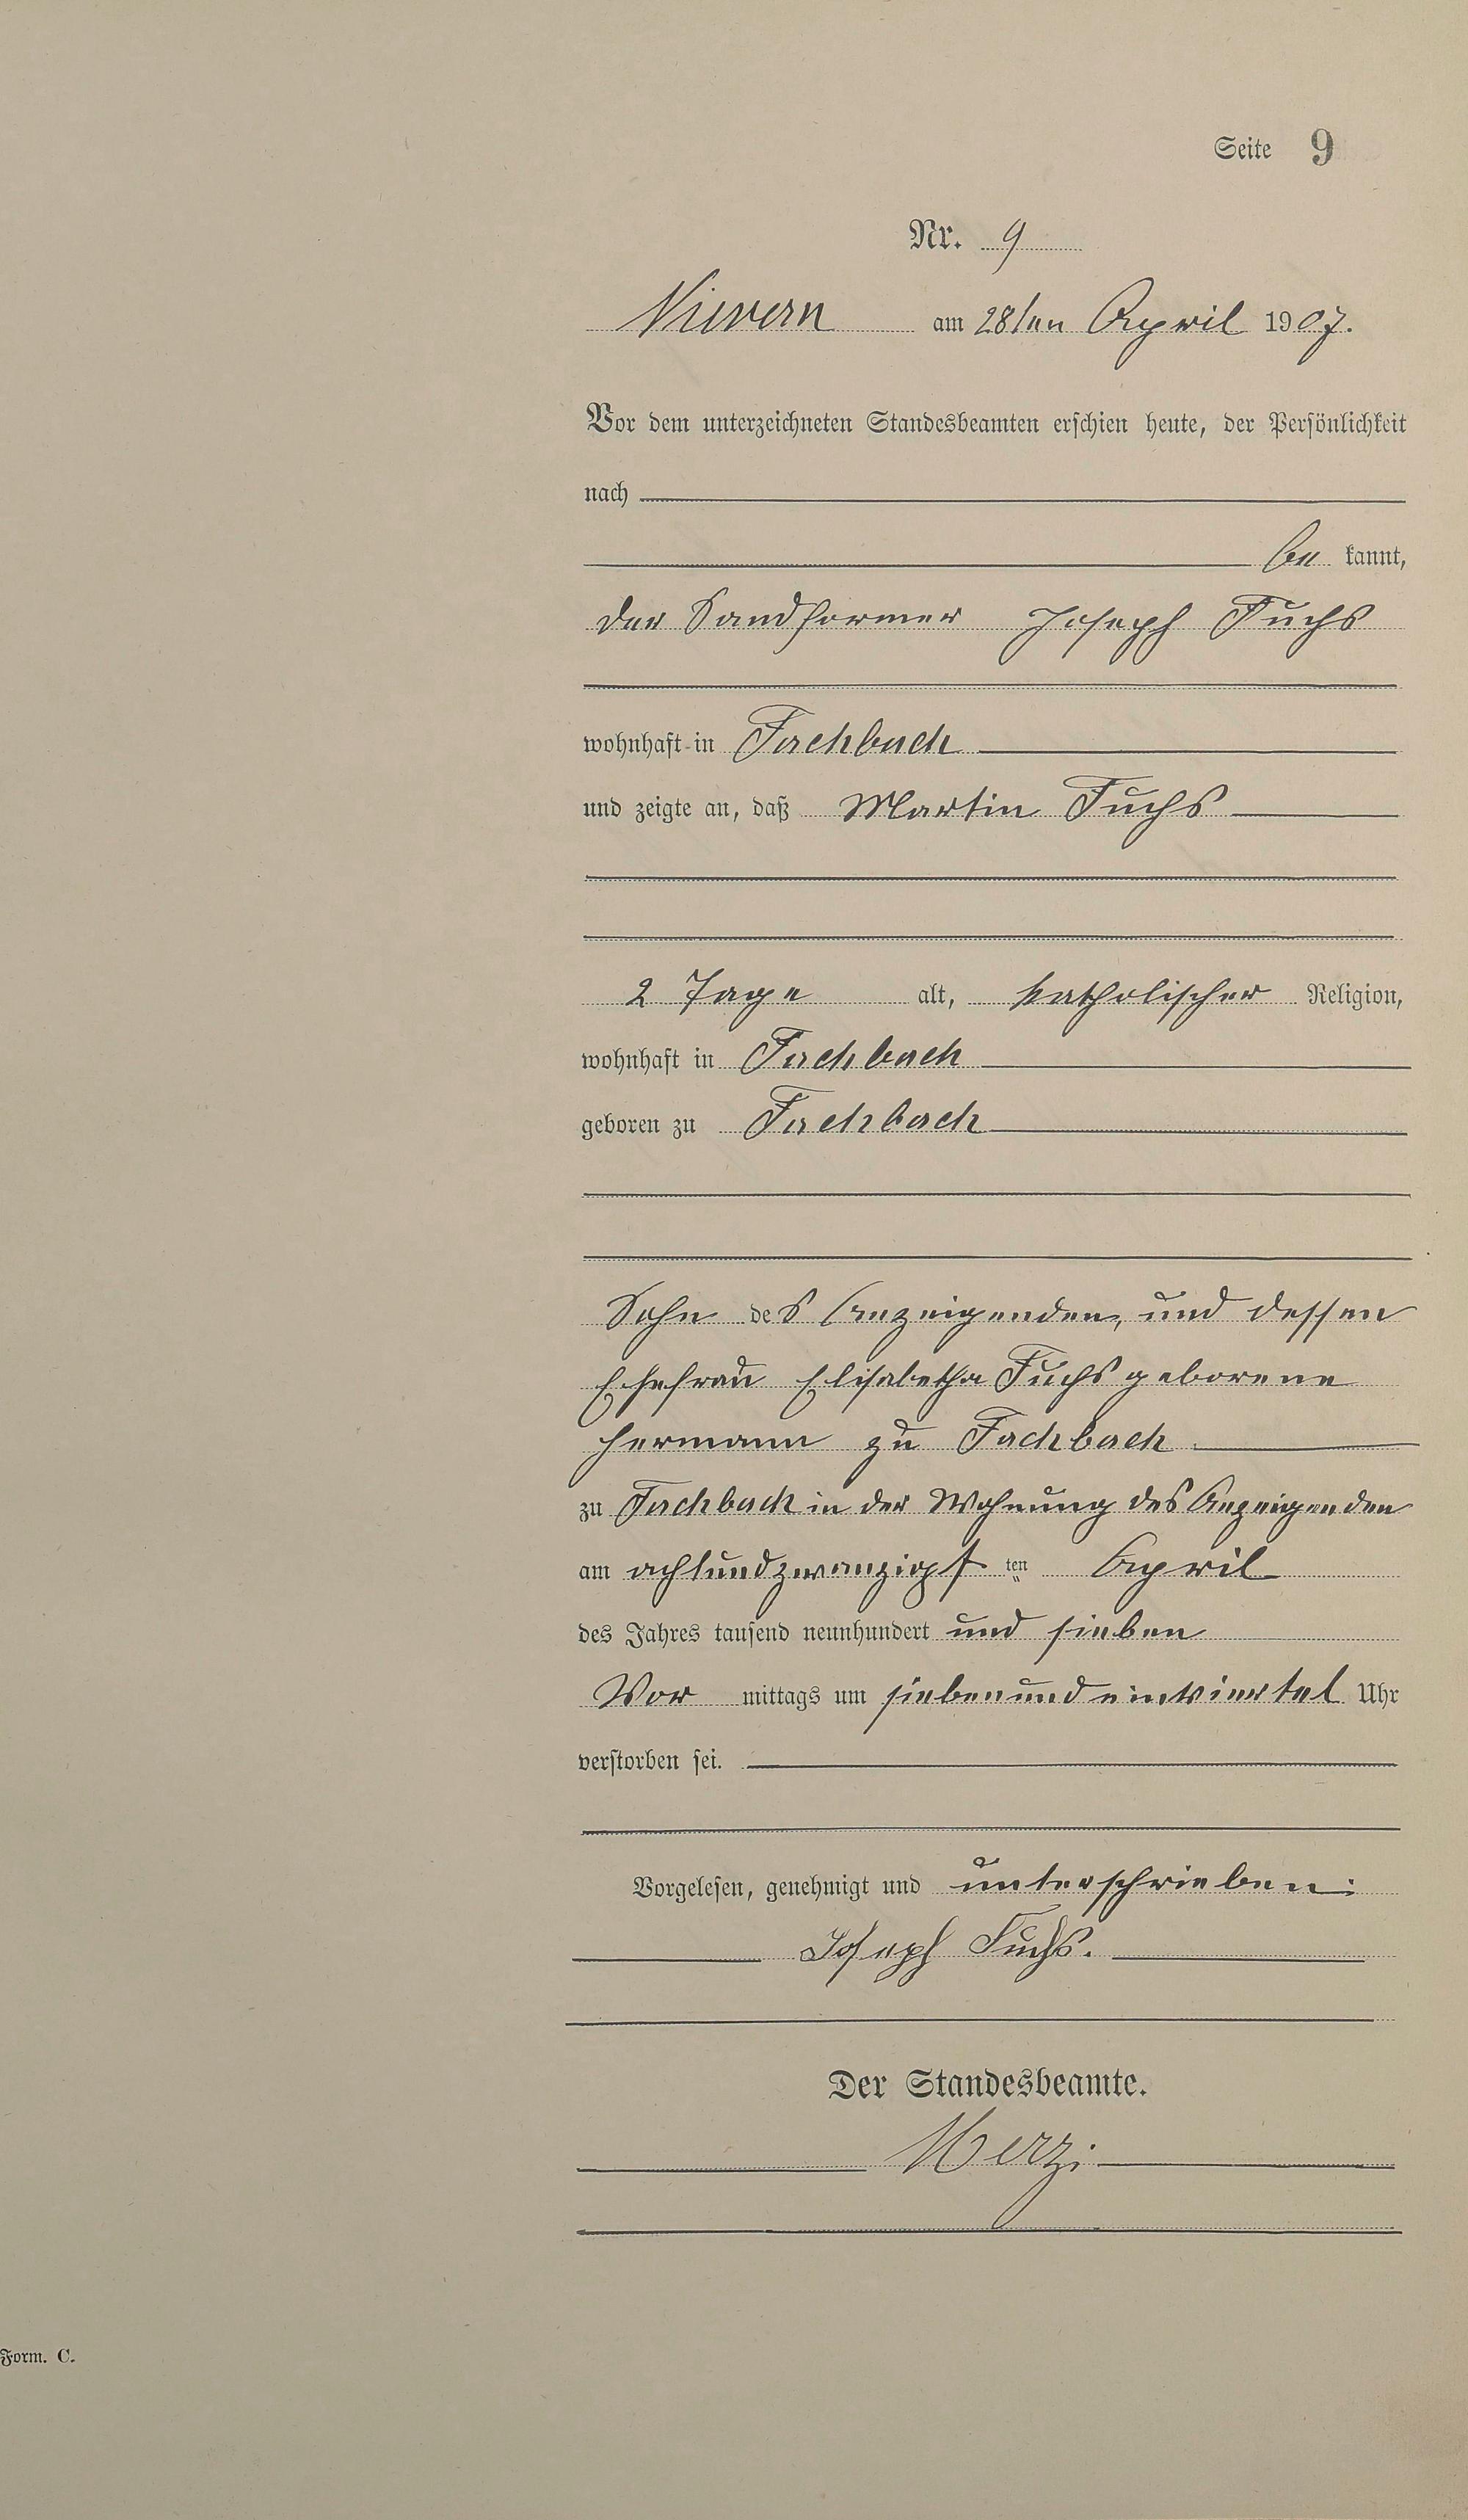 Seite 9
Nr. 9
Nievern am 28ten April 1907.
Vor dem unterzeichneten Standesbeamten erschien heute, der Persönlichkeit
nach
be kannt,
der Sandformer Joseph Fuchs
wohnhaft in Fachbach
und zeigte an, daß Martin Fuchs
2 Tage alt, katholischer Religion,
wohnhaft in Fachbach
geboren zu Fachbach
Sohn des Anzeigenden, und dessen
Ehefrau Elisabetha Fuchs geborene
Hermann zu Fachbach
zu Fachbach in der Wohnung des Anzeigenden
am achtundzwanzigst ten April
des Jahres tausend neunhundert und sieben
Vor mittags um siebenundeinviertel Uhr
verstorben sei.
Vorgelesen, genehmigt und unterschrieben:
Joseph Fuchs.
Der Standesbeamte.
Form. C.